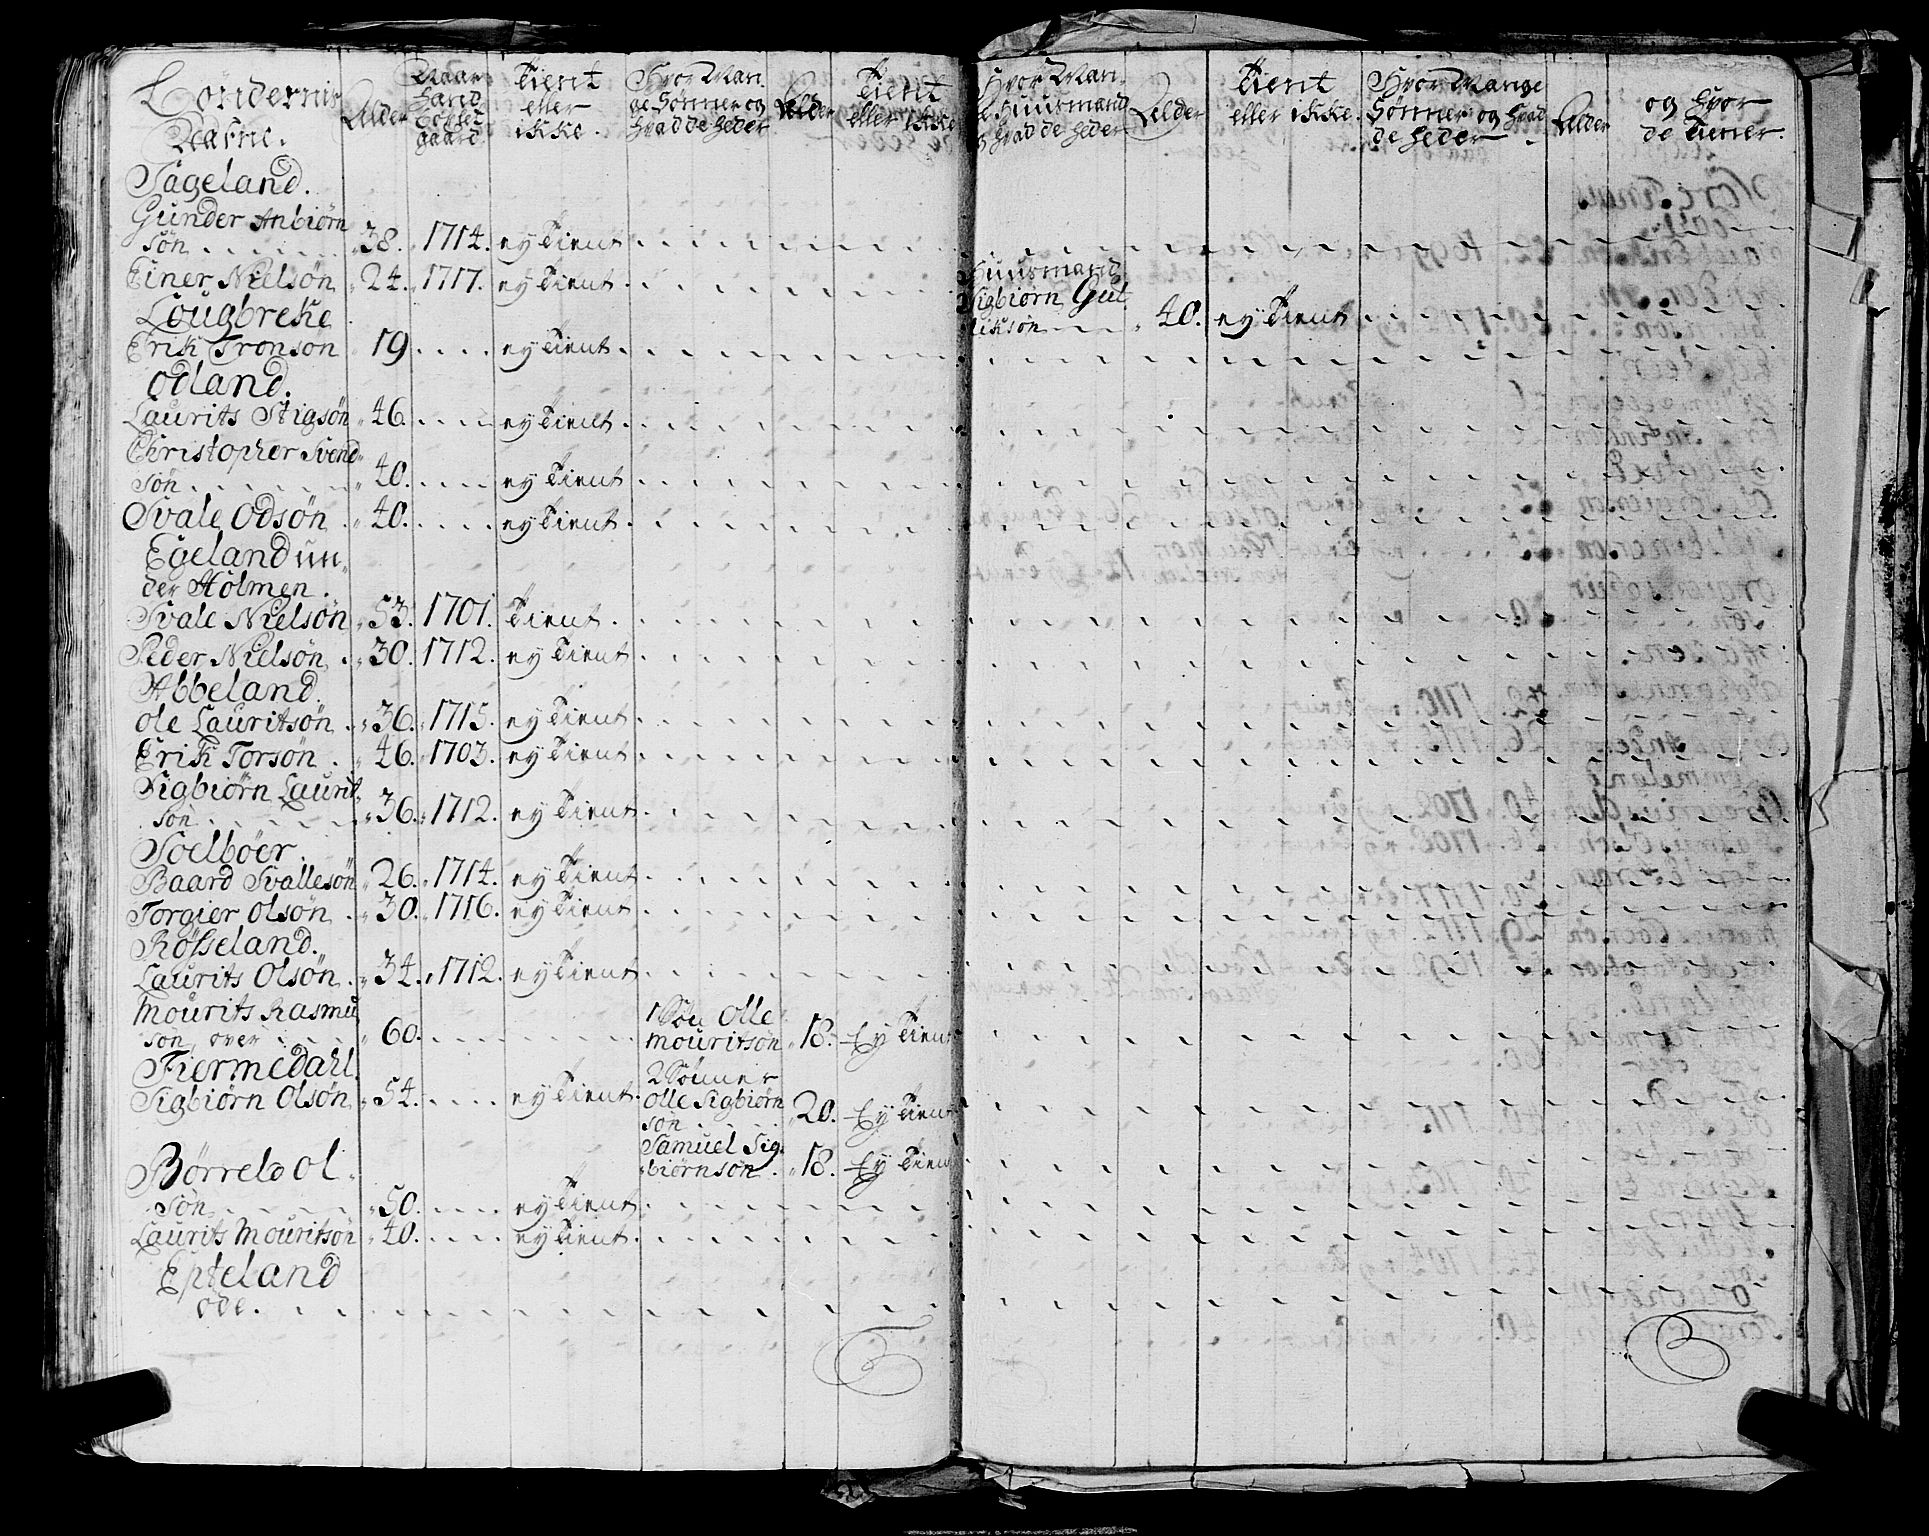 Böndernis
Nafne.
Alder
Naar
hand
Boxlet
gaard
Tient
eller
ikke.
Hvor Man
ge Sønner og
hvad de heder
Alder
Tient
eller ikke
Hvor Man
ge Huusmænd
og hvad de heder
Alder
Tient
eller ikke.
Hvor Mange
Sønner og hvad
de heder
Alder
og hvor
de tiener.
Fageland.
Gunder Anbiørn
søn 38. 1714. ey Tient
Einer Nielsøn 24. 1717. ey Tient
Huusmand
Sigbiørn Gul
liksøn 40. ey Tient
Lougbreke
Erik Tronson 19 ey Tient
Odland.
Laurits Stigsøn 46. ey Tient
Christopher Svend
søn 40. ey Tient
Svale Odsøn 40. ey Tient
Egeland un
der Holmen.
Svale Nielsøn 53. 1701. Tient
Peder Nielsøn 30. 1712. ey Tient
Abbeland.
Ole Lauritsøn 36. 1715. ey Tient
Erik Torsøn 46. 1703. ey Tient
Sigbiørn Laurit
søn 36. 1712. ey Tient
Soelbøer.
Baard Svallesøn 26. 1714. ey Tient
Torgier Olsøn 30. 1716. ey Tient
Røsseland.
Laurits Olsøn 34. 1712. ey Tient
Mourits Rasmu
søn, over 60.
1 Søn Olle
Mouritsøn 18. Ey Tient
Fiermedahl.
Sigbiørn Olsøn 54. ey Tient
2 Sønner
Olle Sigbiørn
søn 20. Ey Tient
Samuel Sig
biørnsøn 18. Ey Tient
Børreld Ol
søn 50. ey Tient
Laurits Mouritsøn 40. ey Tient
Epteland
øde.